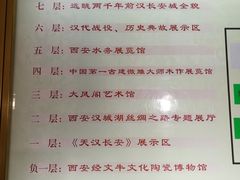 七 层：远眺两千年前汉长安城全貌
六 层：汉代战役、历史典故展示区
五 层：西安水务展览馆
四 层：中国第一古建微雕大师木作展览馆
三 层：大风阁艺术馆
二 层：西安汉城湖丝绸之路专题展厅
一 层：《天汉长安》展示区
负一层：西安经文牛文化陶瓷博物馆